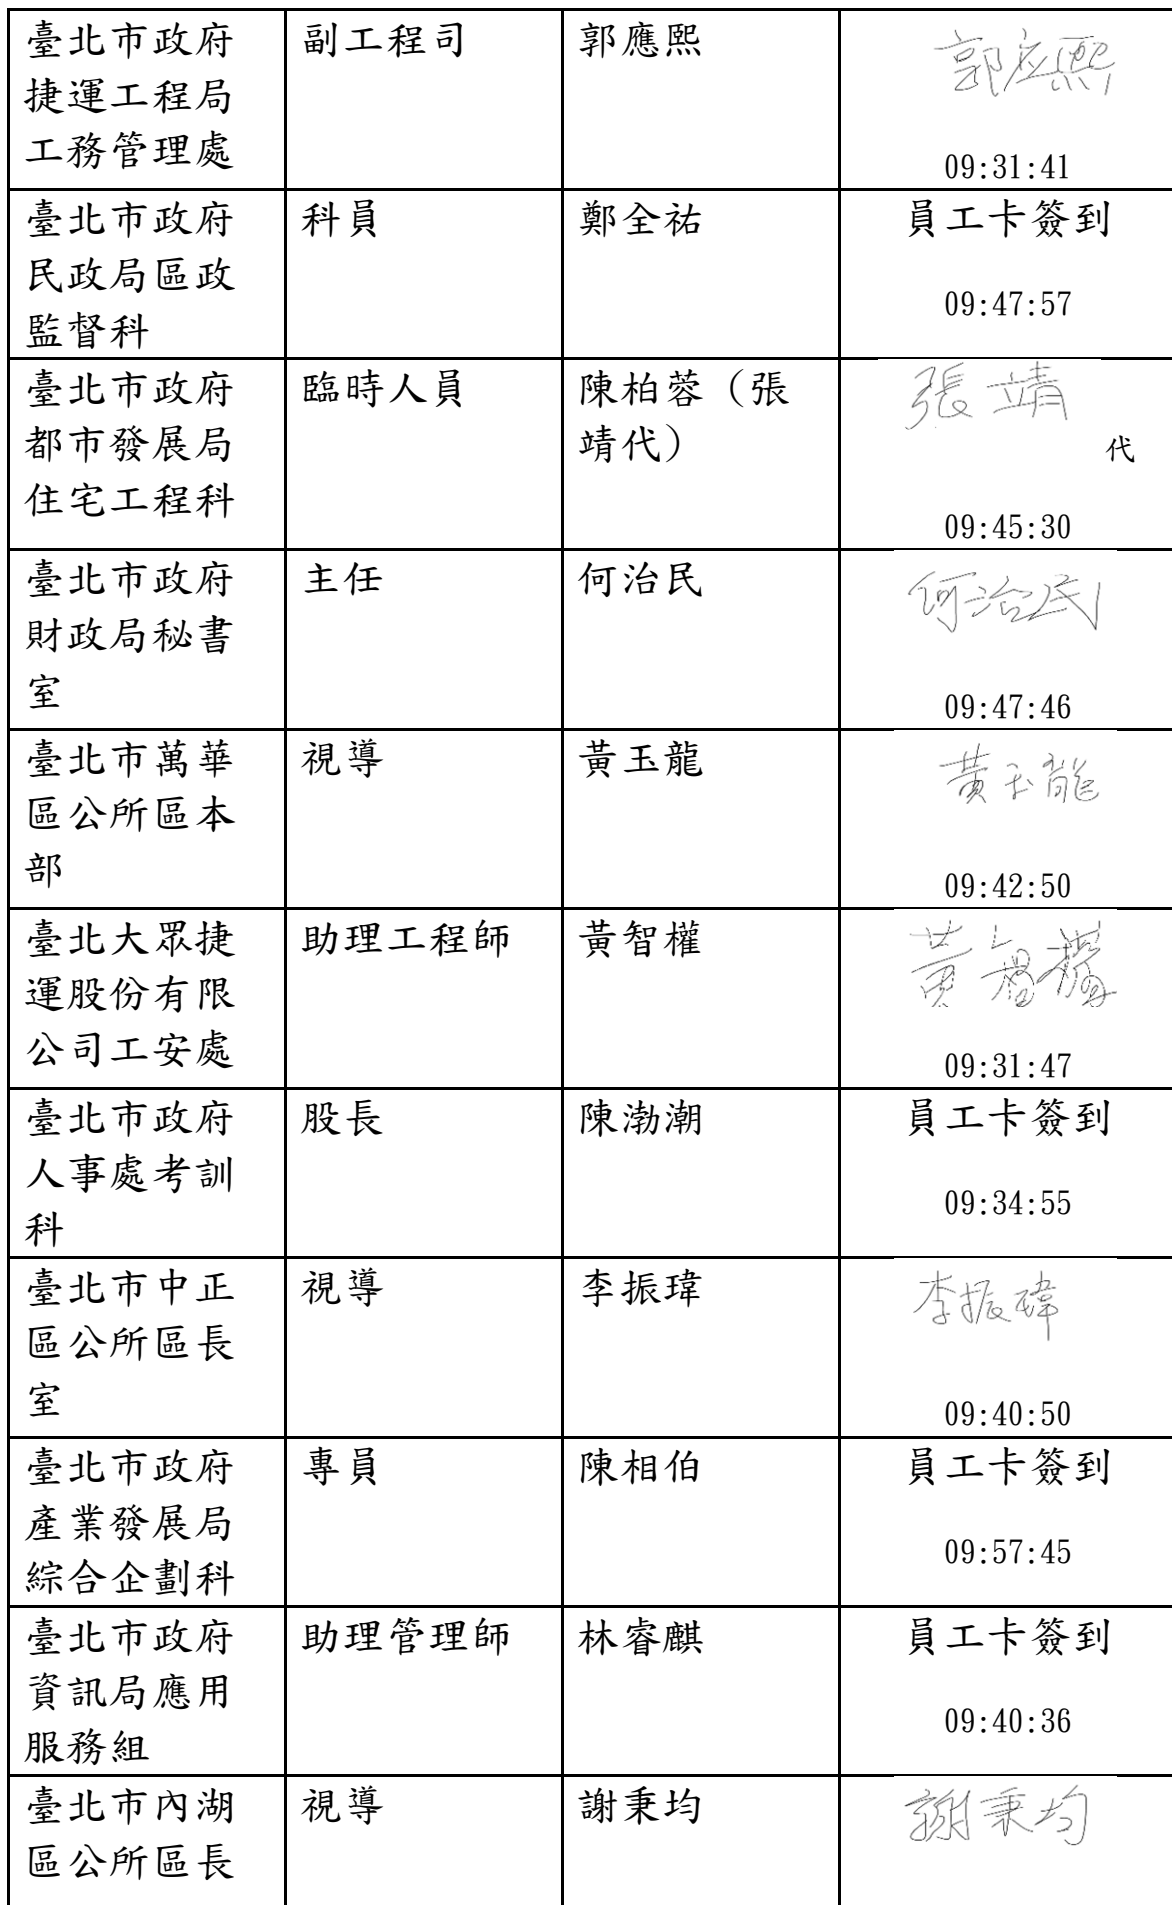 臺北市政府
捷運工程局
工務管理處
副工程司
郭應熙
郭应熙
09:31:41
臺北市政府
民政局區政
監督科
科員
鄭全祐
員工卡簽到
09:47:57
臺北市政府
都市發展局
住宅工程科
臨時人員
陳柏蓉（張
靖代）
張靖
代
09:45:30
臺北市政府
財政局秘書
室
主任
何治民
何治民
09:47:46
臺北市萬華
區公所區本
部
視導
黃玉龍
黃玉龍
09:42:50
臺北大眾捷
運股份有限
公司工安處
助理工程師
黃智權
黃智權
09:31:47
臺北市政府
人事處考訓
科
股長
陳渤潮
員工卡簽到
09:34:55
臺北市中正
區公所區長
室
視導
李振瑋
李振瑋
09:40:50
臺北市政府
產業發展局
綜合企劃科
專員
陳相伯
員工卡簽到
09:57:45
臺北市政府
資訊局應用
服務組
助理管理師
林睿麒
員工卡簽到
09:40:36
臺北市內湖
區公所區長
視導
謝秉均
謝秉均